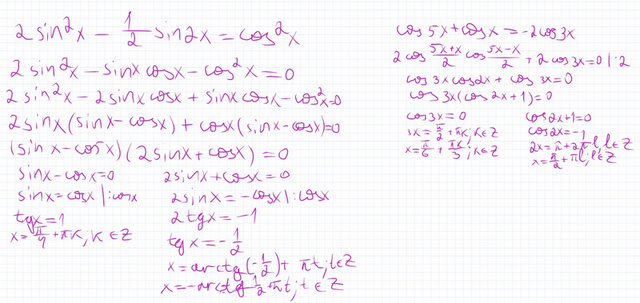 2 sin²x - 1/2 sin 2x = cos²x
2 sin²x - sinx cosx - cos²x = 0
2 sin²x - 2 sinx cosx + sinx cosx - cos²x = 0
2 sinx (sinx - cosx) + cosx (sinx - cosx) = 0
(sin x - cos x) (2 sinx + cosx) = 0
sinx - cosx = 0
sinx = cosx | : cosx
tgx = 1
x = π/4 + πk; k ∈ Z
2 sinx + cosx = 0
2 sinx = -cosx | : cosx
2 tgx = -1
tg x = -1/2
x = arctg(-1/2) + πt; t ∈ Z
x = -arctg 1/2 + πt; t ∈ Z
cos 5x + cos x = -2 cos 3x
2 cos (5x+x)/2 cos (5x-x)/2 + 2 cos 3x = 0 | : 2
cos 3x cos 2x + cos 3x = 0
cos 3x (cos 2x + 1) = 0
cos 3x = 0
3x = π/2 + πk; k ∈ Z
x = π/6 + πk/3; k ∈ Z
cos 2x + 1 = 0
cos 2x = -1
2x = π + 2πl, l ∈ Z
x = π/2 + πl; l ∈ Z